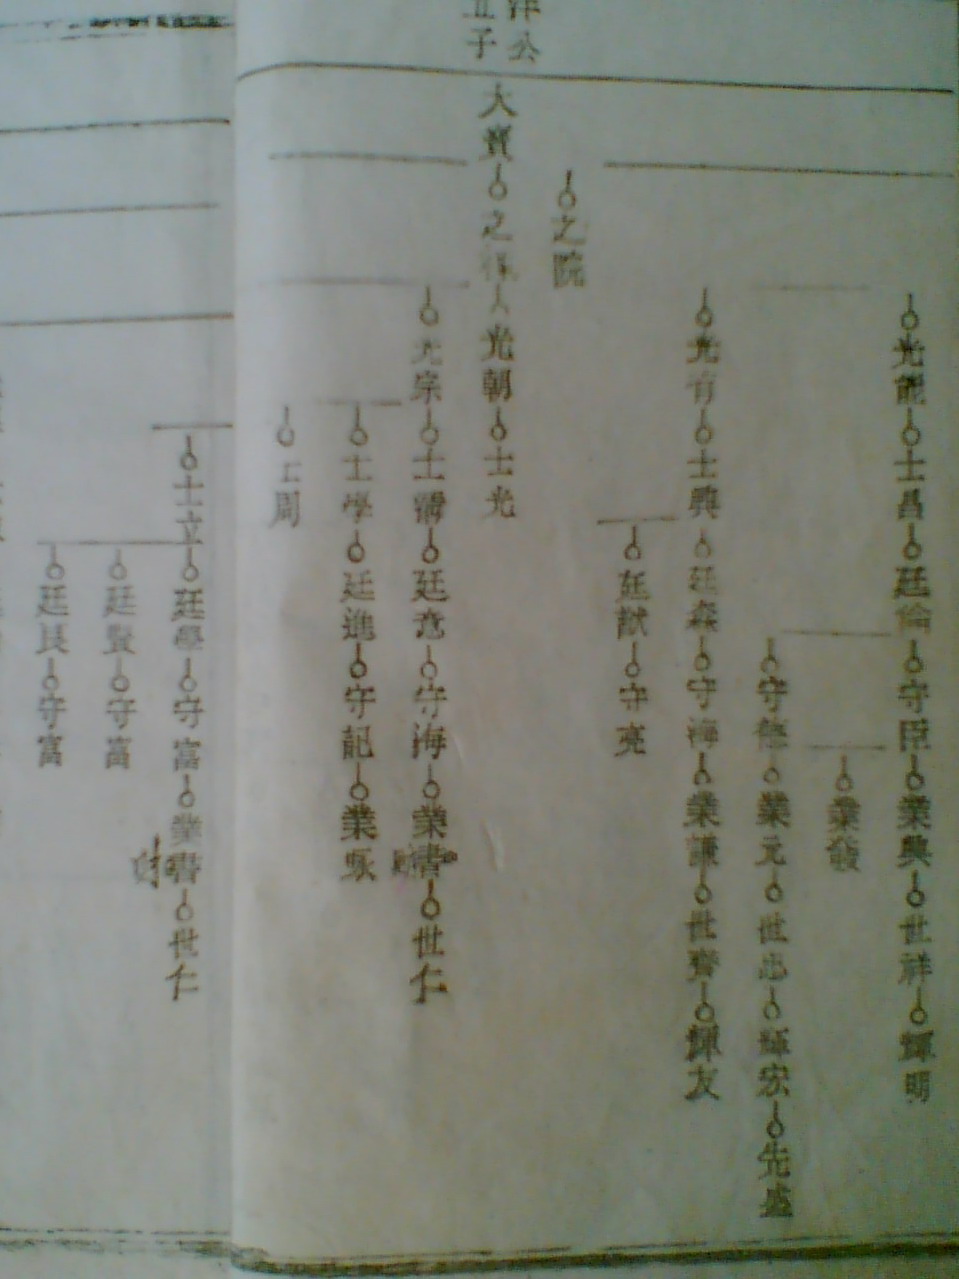 公
子
光能 士昌 廷倫 守臣 業興 世祥 輝明
業發
守 業元 世忠 輝宏 先盛
光有 士興 廷森 守海 業謙 世齊 輝友
廷猷 守亮
之院
大寶 之 光朝 士光
光宗 士清 廷意 守海 業書 世仁
士學 廷進 守記 業
周
士立 廷學 守富 業書 世仁
廷賢 守富
廷良 守富